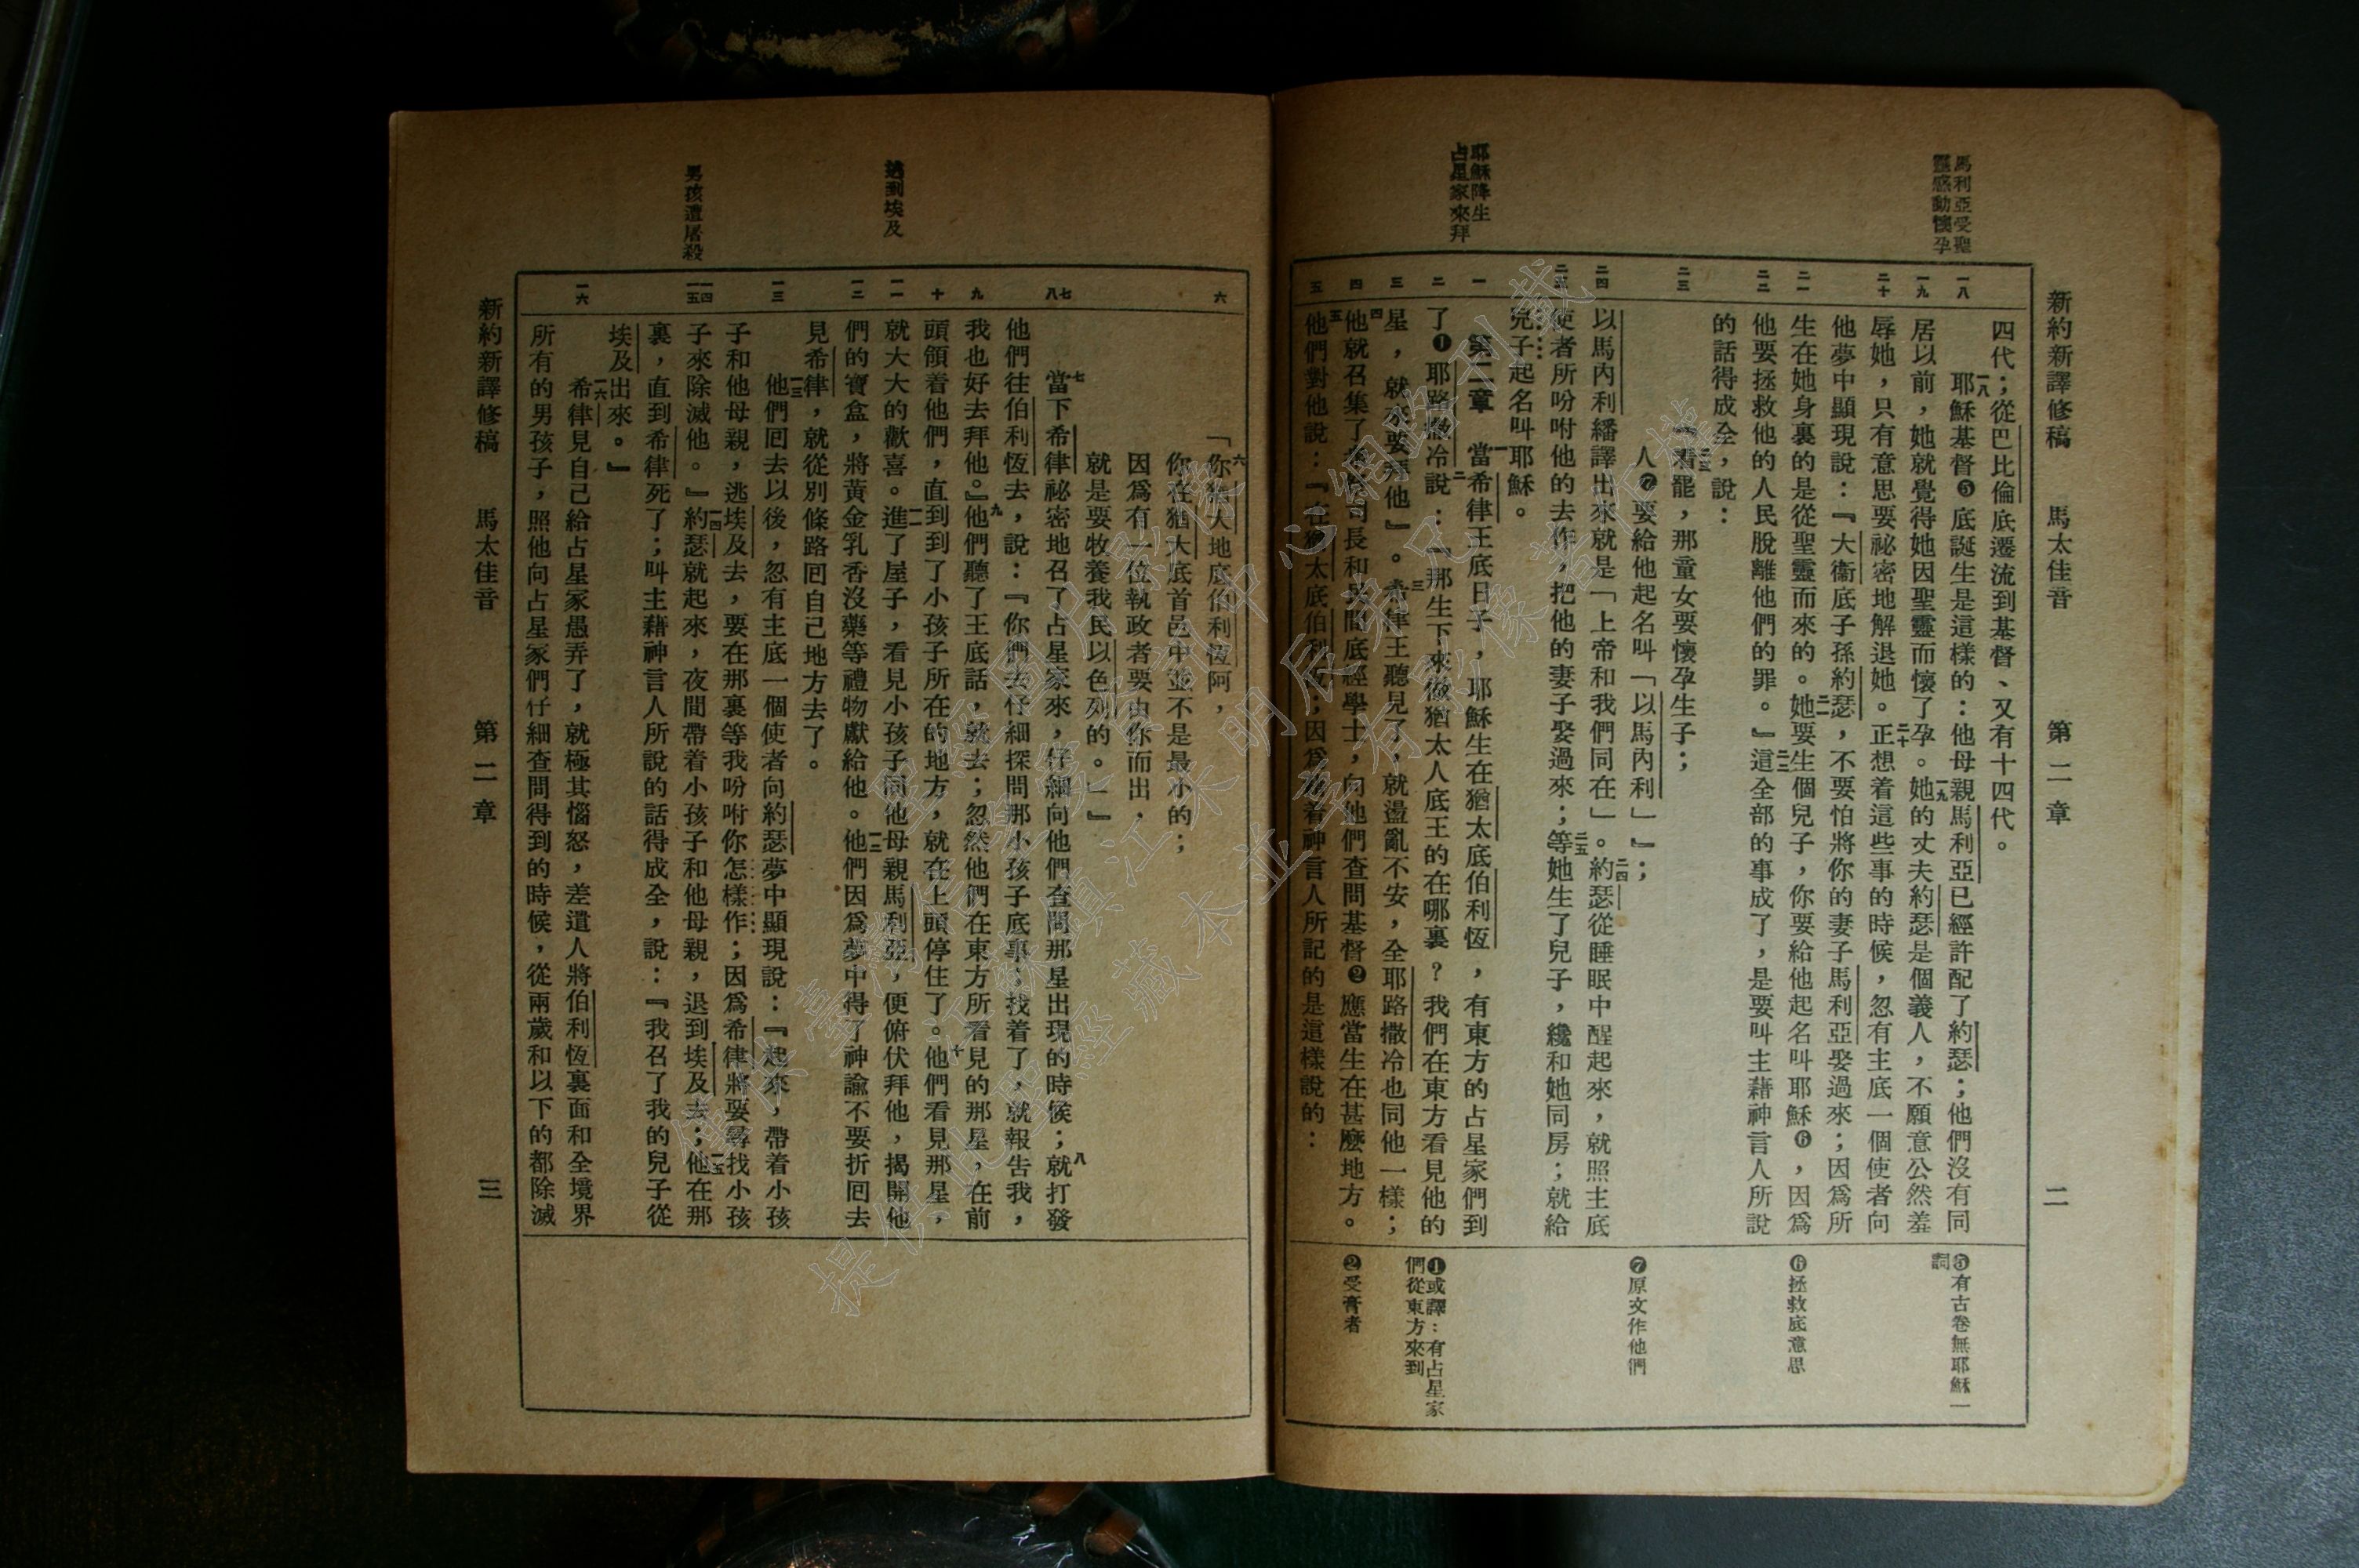 新約新譯修稿　馬太佳音　第二章　二
馬利亞受聖
靈感動懷孕
耶穌降生
占星家來拜
四代；從巴比倫底遷流到基督、又有十四代。
一八耶穌基督❺底誕生是這樣的：他母親馬利亞已經許配了約瑟；他們沒有同
居以前，她就覺得她因聖靈而懷了孕。一九她的丈夫約瑟是個義人，不願意公然羞
辱她，只有意思要祕密地解退她。二十正想着這些事的時候，忽有主底一個使者向
他夢中顯現說：『大衞底子孫約瑟，不要怕將你的妻子馬利亞娶過來；因爲所
生在她身裏的是從聖靈而來的。二一她要生個兒子，你要給他起名叫耶穌❻，因爲
他要拯救他的人民脫離他們的罪。』二二這全部的事成了，是要叫主藉神言人所說
的話得成全，說：
二三『看罷，那童女要懷孕生子；
人❼要給他起名叫「以馬內利」』；
以馬內利繙譯出來就是「上帝和我們同在」。二四約瑟從睡眠中醒起來，就照主底
使者所吩咐他的去作，把他的妻子娶過來；二五等她生了兒子，纔和她同房；就給
兒子起名叫耶穌。
第二章　一當希律王底日子，耶穌生在猶太底伯利恆，有東方的占星家們到
了❶耶路撒冷說：二『那生下來做猶太人底王的在哪裏？我們在東方看見他的
星，就來要拜他』。三希律王聽見了，就盪亂不安，全耶路撒冷也同他一樣；
四他就召集了祭司長和民間底經學士，向他們查問基督❷應當生在甚麼地方。
五他們對他說：『在猶太底伯利恆；因爲藉着神言人所記的是這樣說的：
❺有古卷無耶穌一
詞
❻拯救底意思
❼原文作他們
❶或譯：有占星家
們從東方來到
❷受膏者
逃到埃及
男孩遭屠殺
六「你猶大地底伯利恆阿，
你在猶大底首邑中並不是最小的；
因爲有一位執政者要由你而出，
就是要牧養我民以色列的。」』
七當下希律祕密地召了占星家來，仔細向他們查問那星出現的時候；八就打發
他們往伯利恆去，說：『你們去仔細探問那小孩子底事；找着了，就報告我，
我也好去拜他。』九他們聽了王底話，就去；忽然他們在東方所看見的那星，在前
頭領着他們，直到到了小孩子所在的地方，就在上頭停住了。十他們看見那星，
就大大的歡喜。一一進了屋子，看見小孩子同他母親馬利亞，便俯伏拜他，揭開他
們的寶盒，將黃金乳香沒藥等禮物獻給他。一二他們因爲夢中得了神諭不要折回去
見希律，就從別條路回自己地方去了。
一三他們回去以後，忽有主底一個使者向約瑟夢中顯現說：『起來，帶着小孩
子和他母親，逃埃及去，要在那裏等我吩咐你怎樣作；因爲希律將要尋找小孩
子來除滅他。』一四約瑟就起來，夜間帶着小孩子和他母親，退到埃及去；一五他在那
裏，直到希律死了；叫主藉神言人所說的話得成全，說：『我召了我的兒子從
埃及出來。』
一六希律見自己給占星家愚弄了，就極其惱怒，差遣人將伯利恆裏面和全境界
所有的男孩子，照他向占星家們仔細查問得到的時候，從兩歲和以下的都除滅
新約新譯修稿　馬太佳音　第二章　三